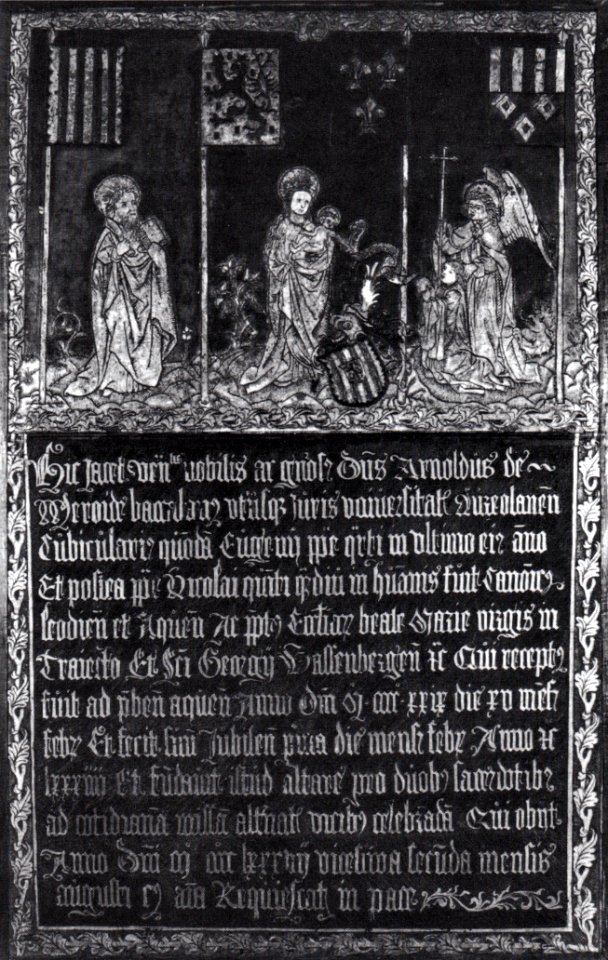 Hic Jacet ven^lis nobilis ac gnos Dns Arnoldus de
Meroide baccalari utriusq Juris universitat Aureolanen
Cubicularis quoda Eugenij ppe qrti in ultimo eis ano
Et postea ppe Nicolai quinti qdiu in humanis fuit Canonic
leodien et Aquen Ac ppt Ecliar beate Marie virgis in
Traiecto Et Sci Georgij Wassenbergen zc Qui recept
fuit ad pben aquen Anno Dni M ccc xxix die xv mes
febr Et fecit suu Jubileu pma die mens febr Anno zc
lxxxiiij Et fundavit istud altare pro duob sacerdotib
ad cotidiana missa alternat vicib celebrada Qui obijt
Anno Dni M ccc lxxxvij vicesima secuda mensis
augusti C aia Requiescat in pace